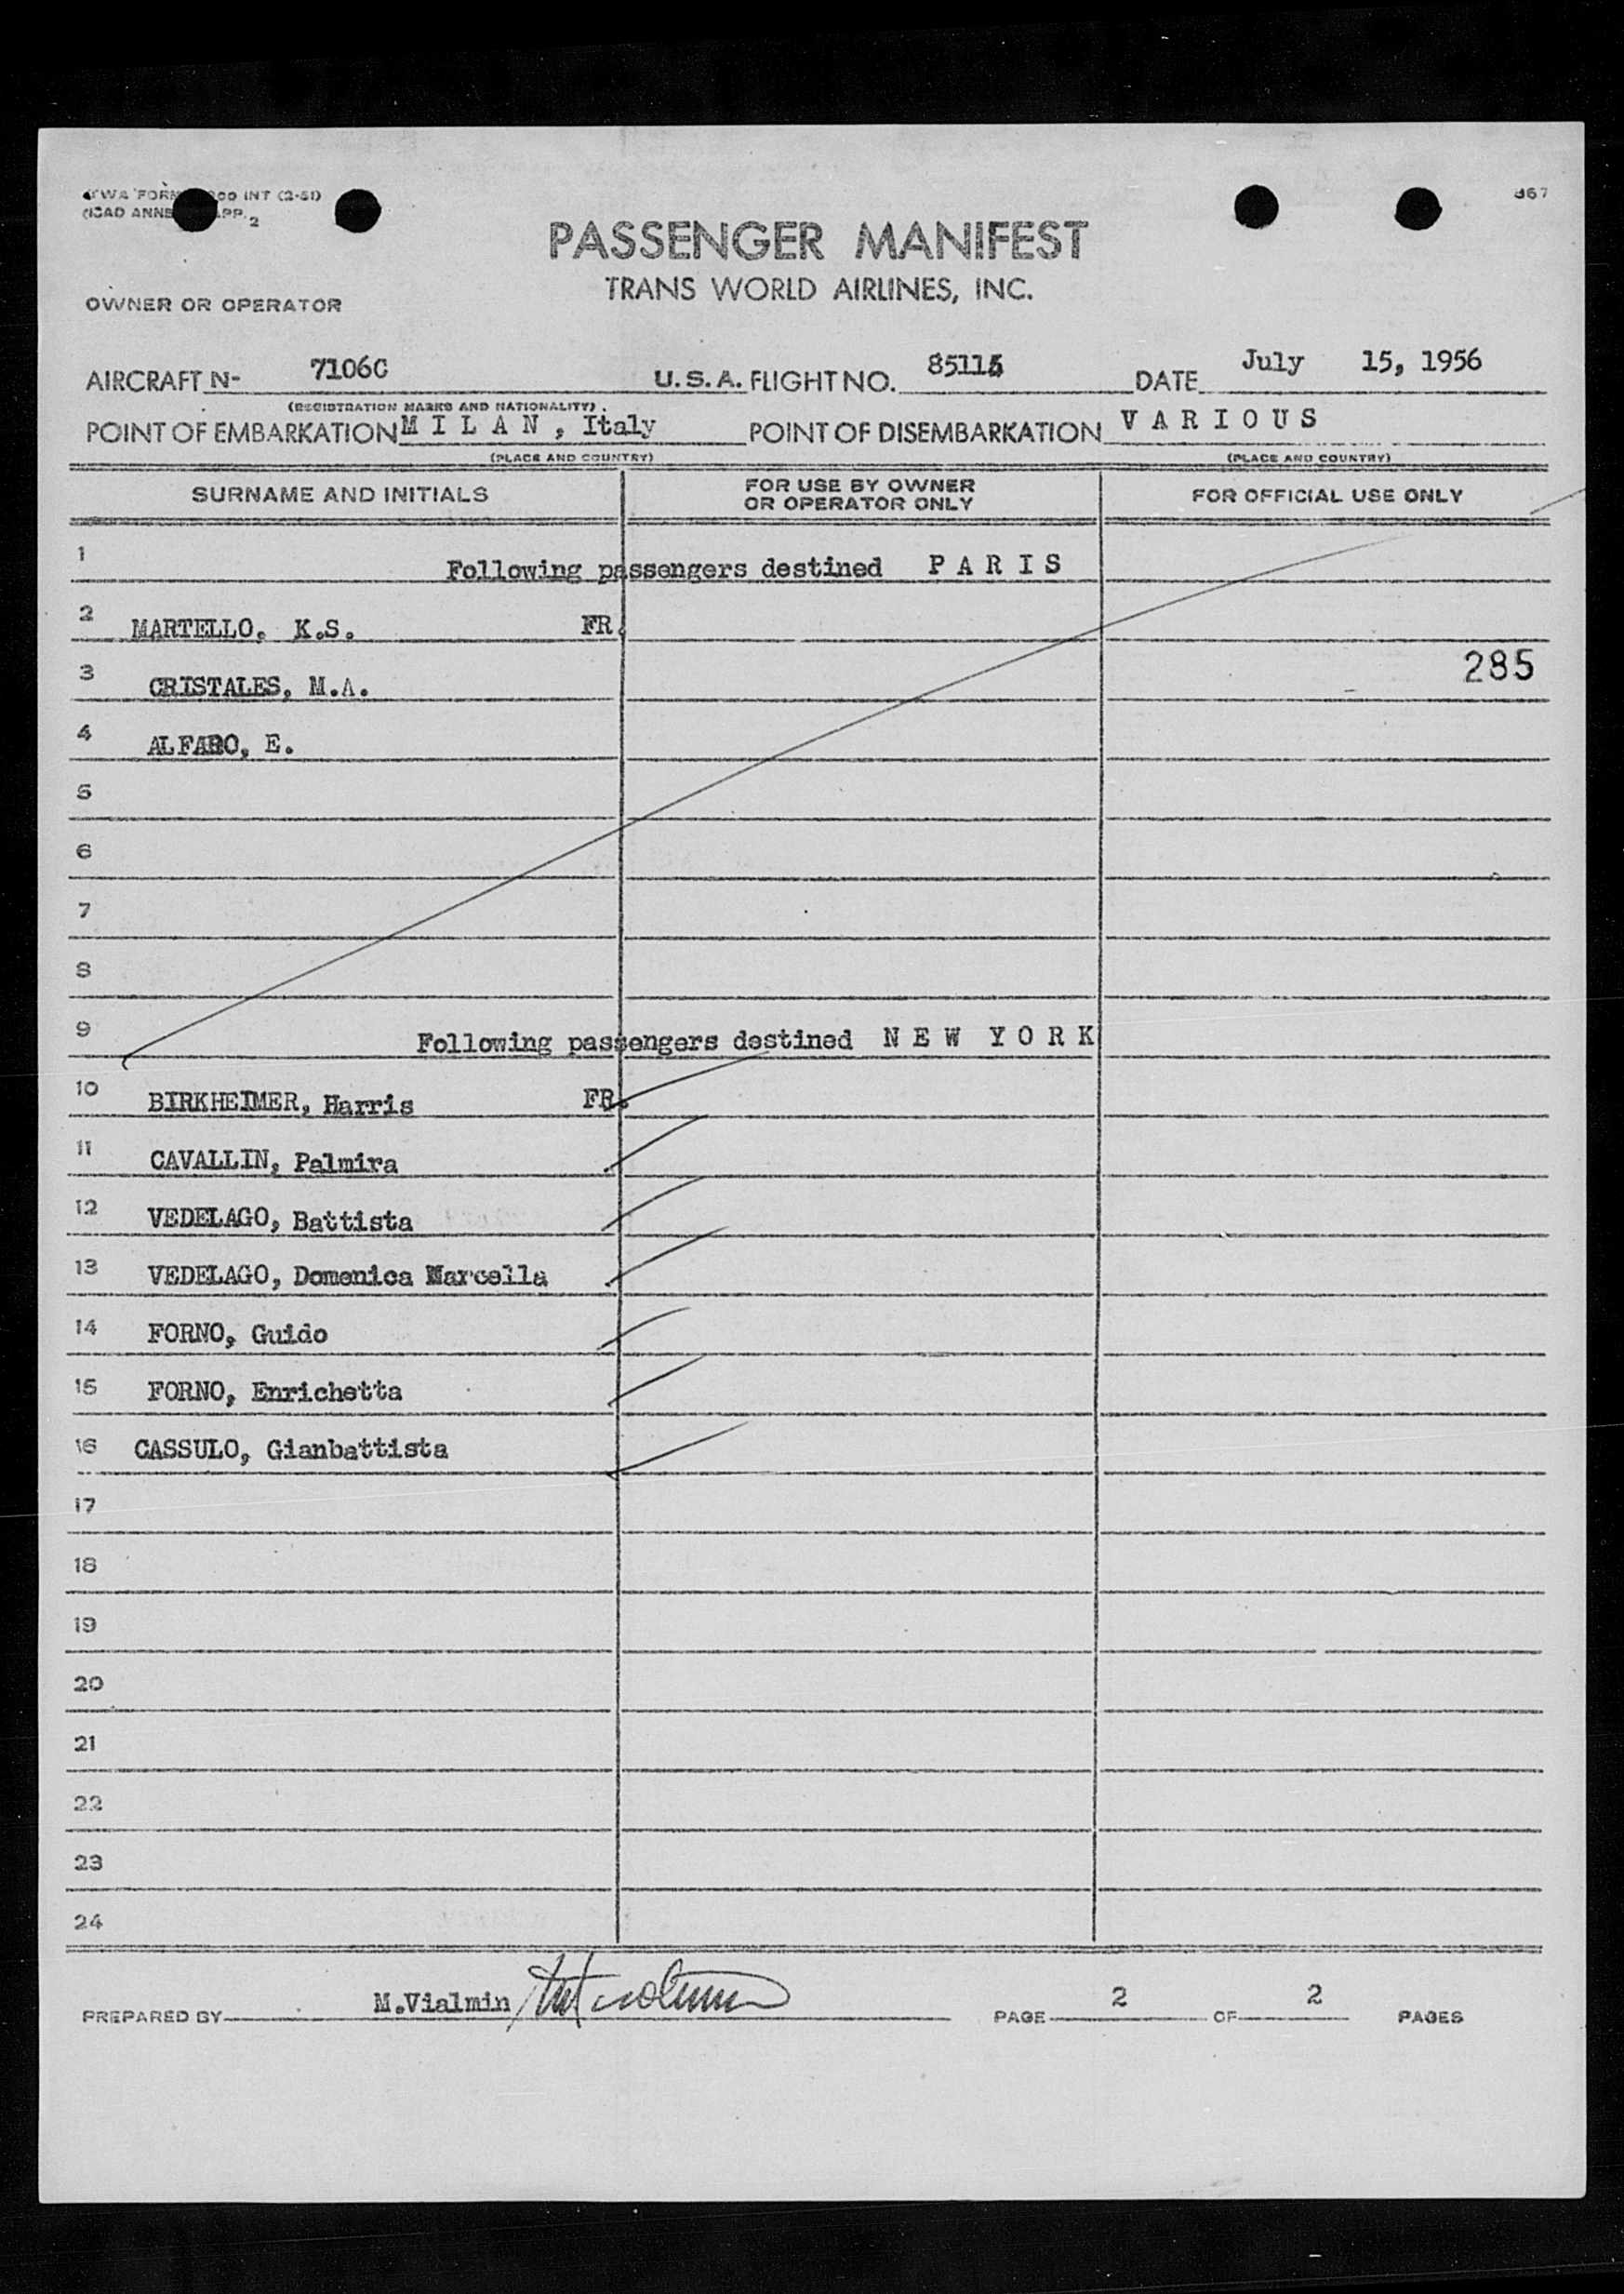 INT (2-51)
367
APP. 2
PASSENGER MANIFEST
TRANS WORLD AIRLINES, INC.
OWNER OR OPERATOR
AIRCRAFT N- 7106C U.S.A. FLIGHT NO. DATE July 15, 1956
(REGISTRATION MARKS AND NATIONALITY)
POINT OF EMBARKATION M I L A N , Italy POINT OF DISEMBARKATION V A R I O U S
(PLACE AND COUNTRY) (PLACE AND COUNTRY)
SURNAME AND INITIALS FOR USE BY OWNER OR OPERATOR ONLY FOR OFFICIAL USE ONLY
1 Following passengers destined P A R I S
2 MARTELLO, K.S. FR.
285
3 CRISTALES, M.A.
4 ALFARO, E.
5
6
7
8
9 Following passengers destined N E W Y O R K
10 BIRKHEIMER, Harris FR.
11 CAVALLIN, Palmira
12 VEDELAGO, Battista
13 VEDELAGO, Domenica Marcella
14 FORNO, Guido
15 FORNO, Enrichetta
16 CASSULO, Gianbattista
17
18
19
20
21
22
23
24
PREPARED BY M.Vialmin PAGE 2 OF 2 PAGES